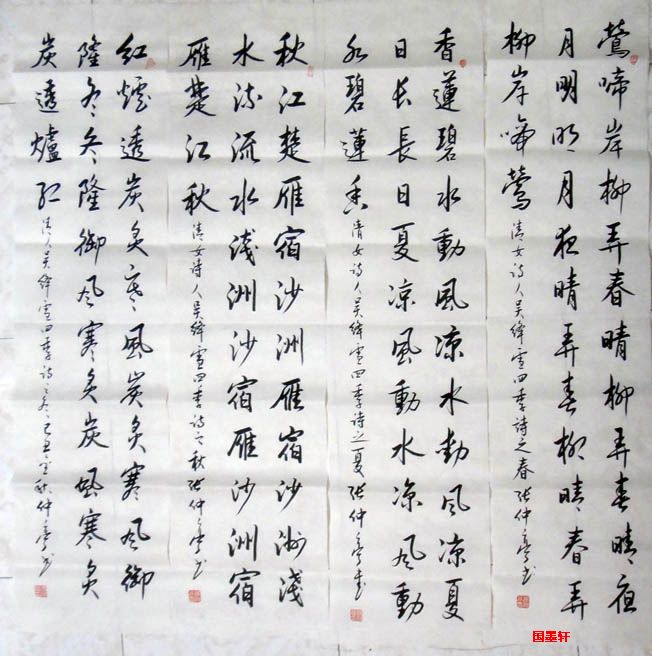 鶯啼岸柳弄春晴柳弄春晴夜
月明明月夜晴弄春柳晴春弄
柳岸啼鶯 清女詩人吴絳雪四季詩之春 张仲亭书
香蓮碧水動風凉水動风凉夏
日長長日夏凉風動水凉风動
水碧蓮香 清女詩人吴絳雪四季詩之夏 张仲亭书
秋江楚雁宿沙洲雁宿沙洲淺
水流流水淺洲沙宿雁沙洲宿
雁楚江秋 清女詩人吴絳雪四季詩之秋 张仲亭书
红爐透炭炙寒風炭炙寒风御
隆冬冬隆御风寒炙炭風寒炙
炭透爐红 清人吴絳雪四季詩之冬 己丑 秋仲亭书
国墨轩